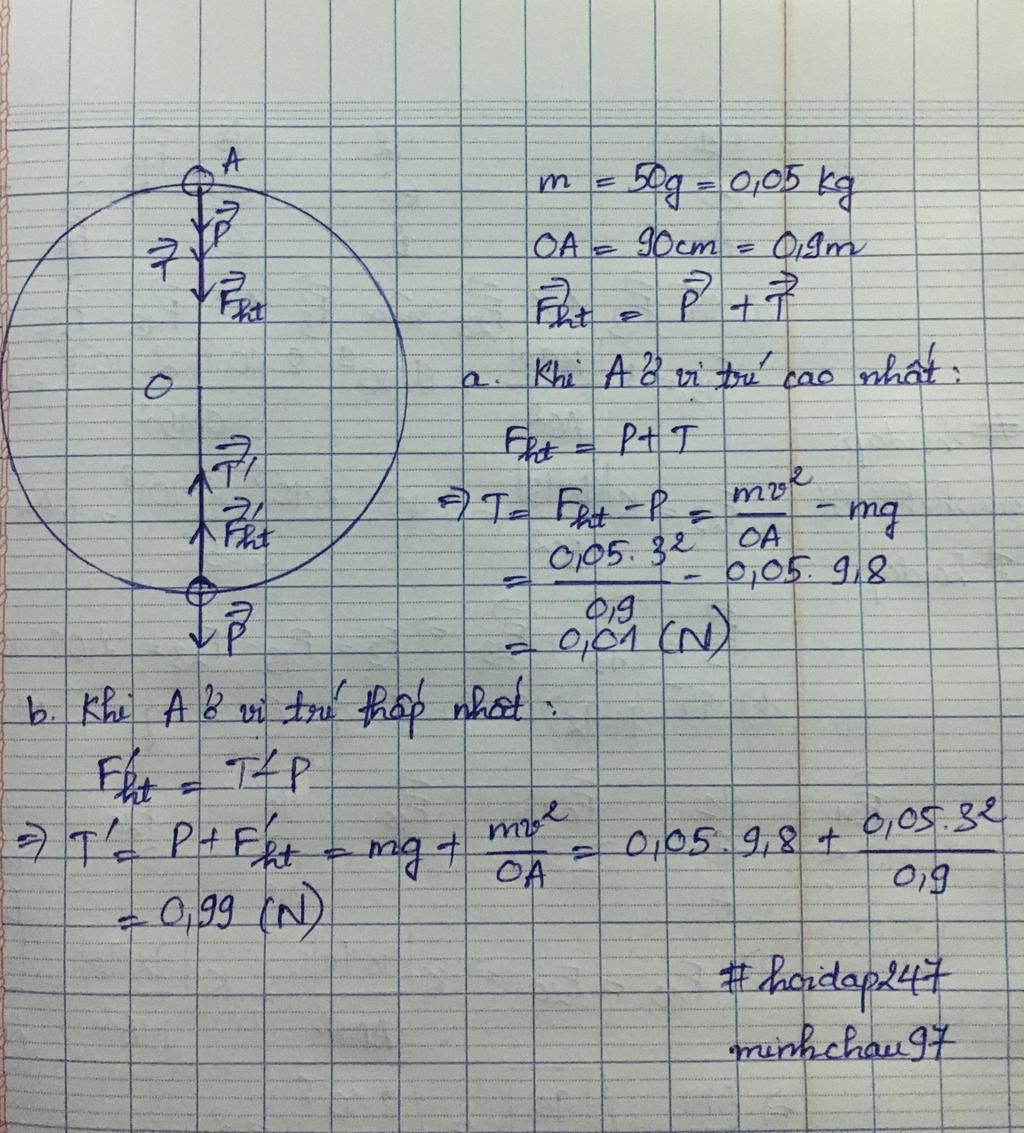 A
P⃗
T⃗
F⃗ht
O
T⃗'
F⃗'ht
P⃗
m = 50g = 0,05 kg
OA = 90cm = 0,9m
F⃗ht = P⃗ + T⃗
a. Khi A ở vị trí cao nhất:
Fht = P + T
=> T = Fht - P = mv²/OA - mg
= 0,05. 3²/0,9 - 0,05. 9,8
= 0,01 (N)
b. Khi A ở vị trí thấp nhất:
F'ht = T' - P
=> T' = P + F'ht = mg + mv²/OA = 0,05. 9,8 + 0,05.3²/0,9
= 0,99 (N)
# hoidap247
minhchau97